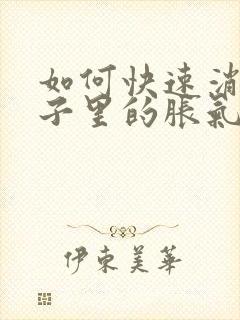 如何快速消
子里的胀氣
伊東美華